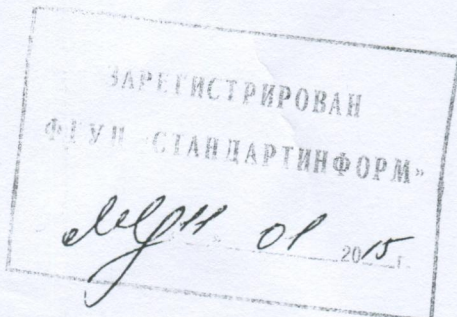 ЗАРЕГИСТРИРОВАН
ФГУП «СТАНДАРТИНФОРМ»
" 01 2015 г.